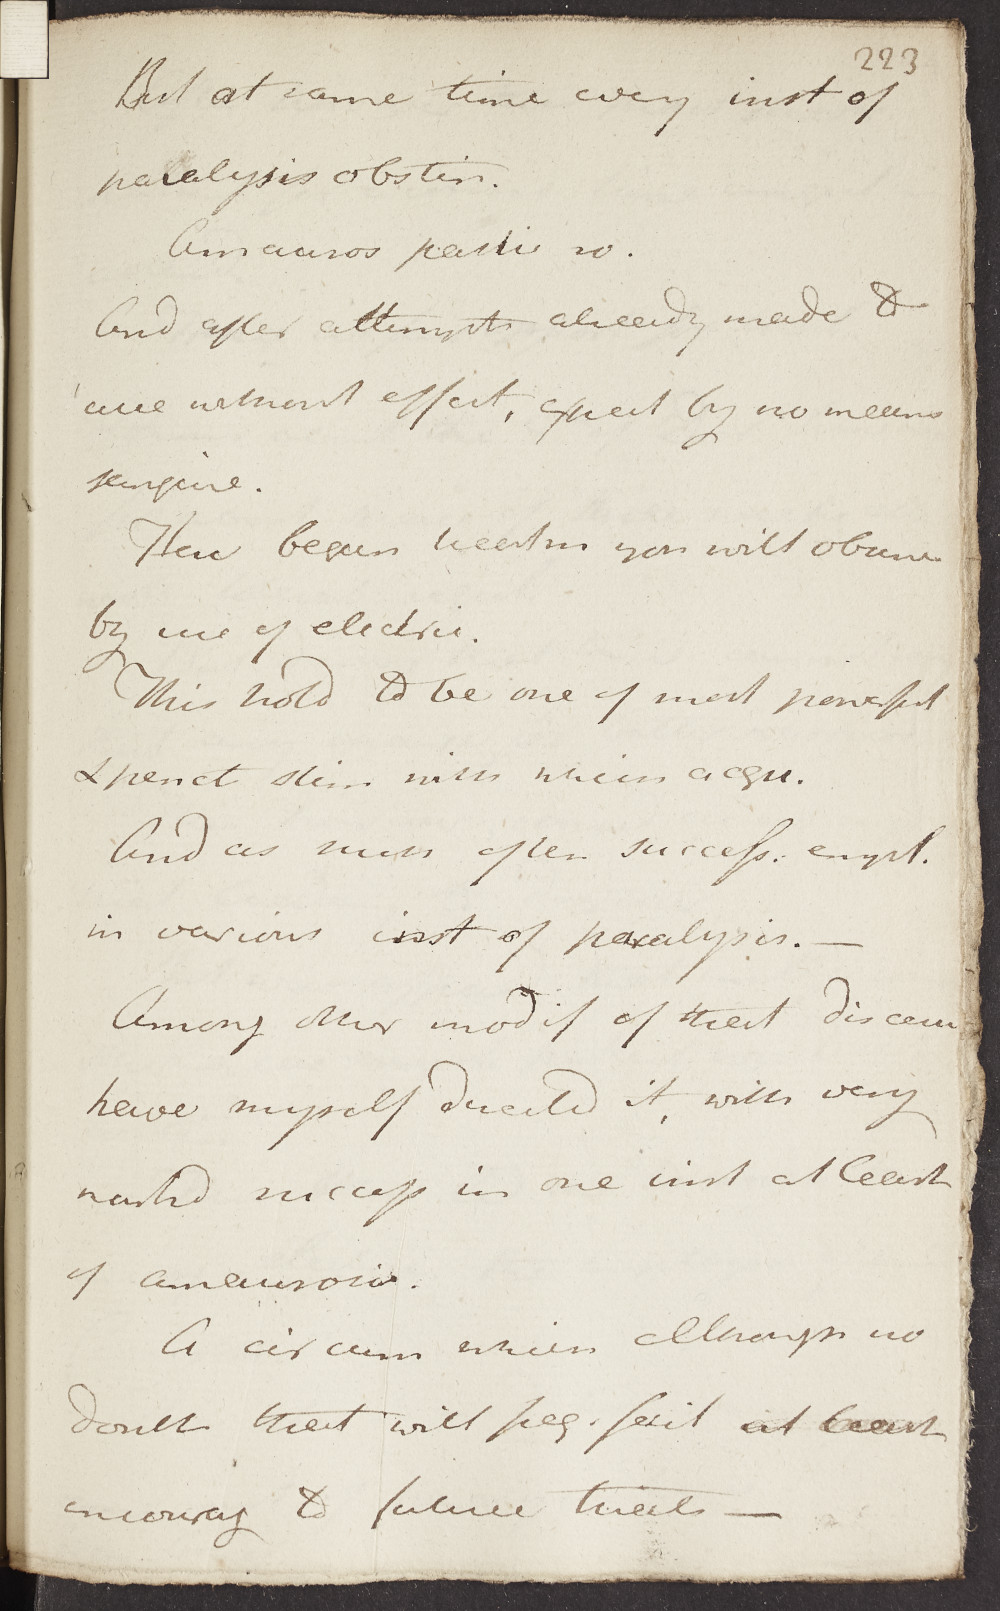 223
But at same time every inst of
paralysis obstin.
Amauros parti so.
And after attempts already made to
cure without effect, expect by no means
sanguine.
Have begun treatm you will observe
by use of electric.
This hold to be one of most powerful
& penet stim with which acqu.
And as such often success. empl.
in various inst of paralysis. —
Among other modif of that disease
have myself directed it, with very
marked success in one inst at least
of amaurosis.
A circum which although no
doubt that will freq. fail at least
encourag to future trials —